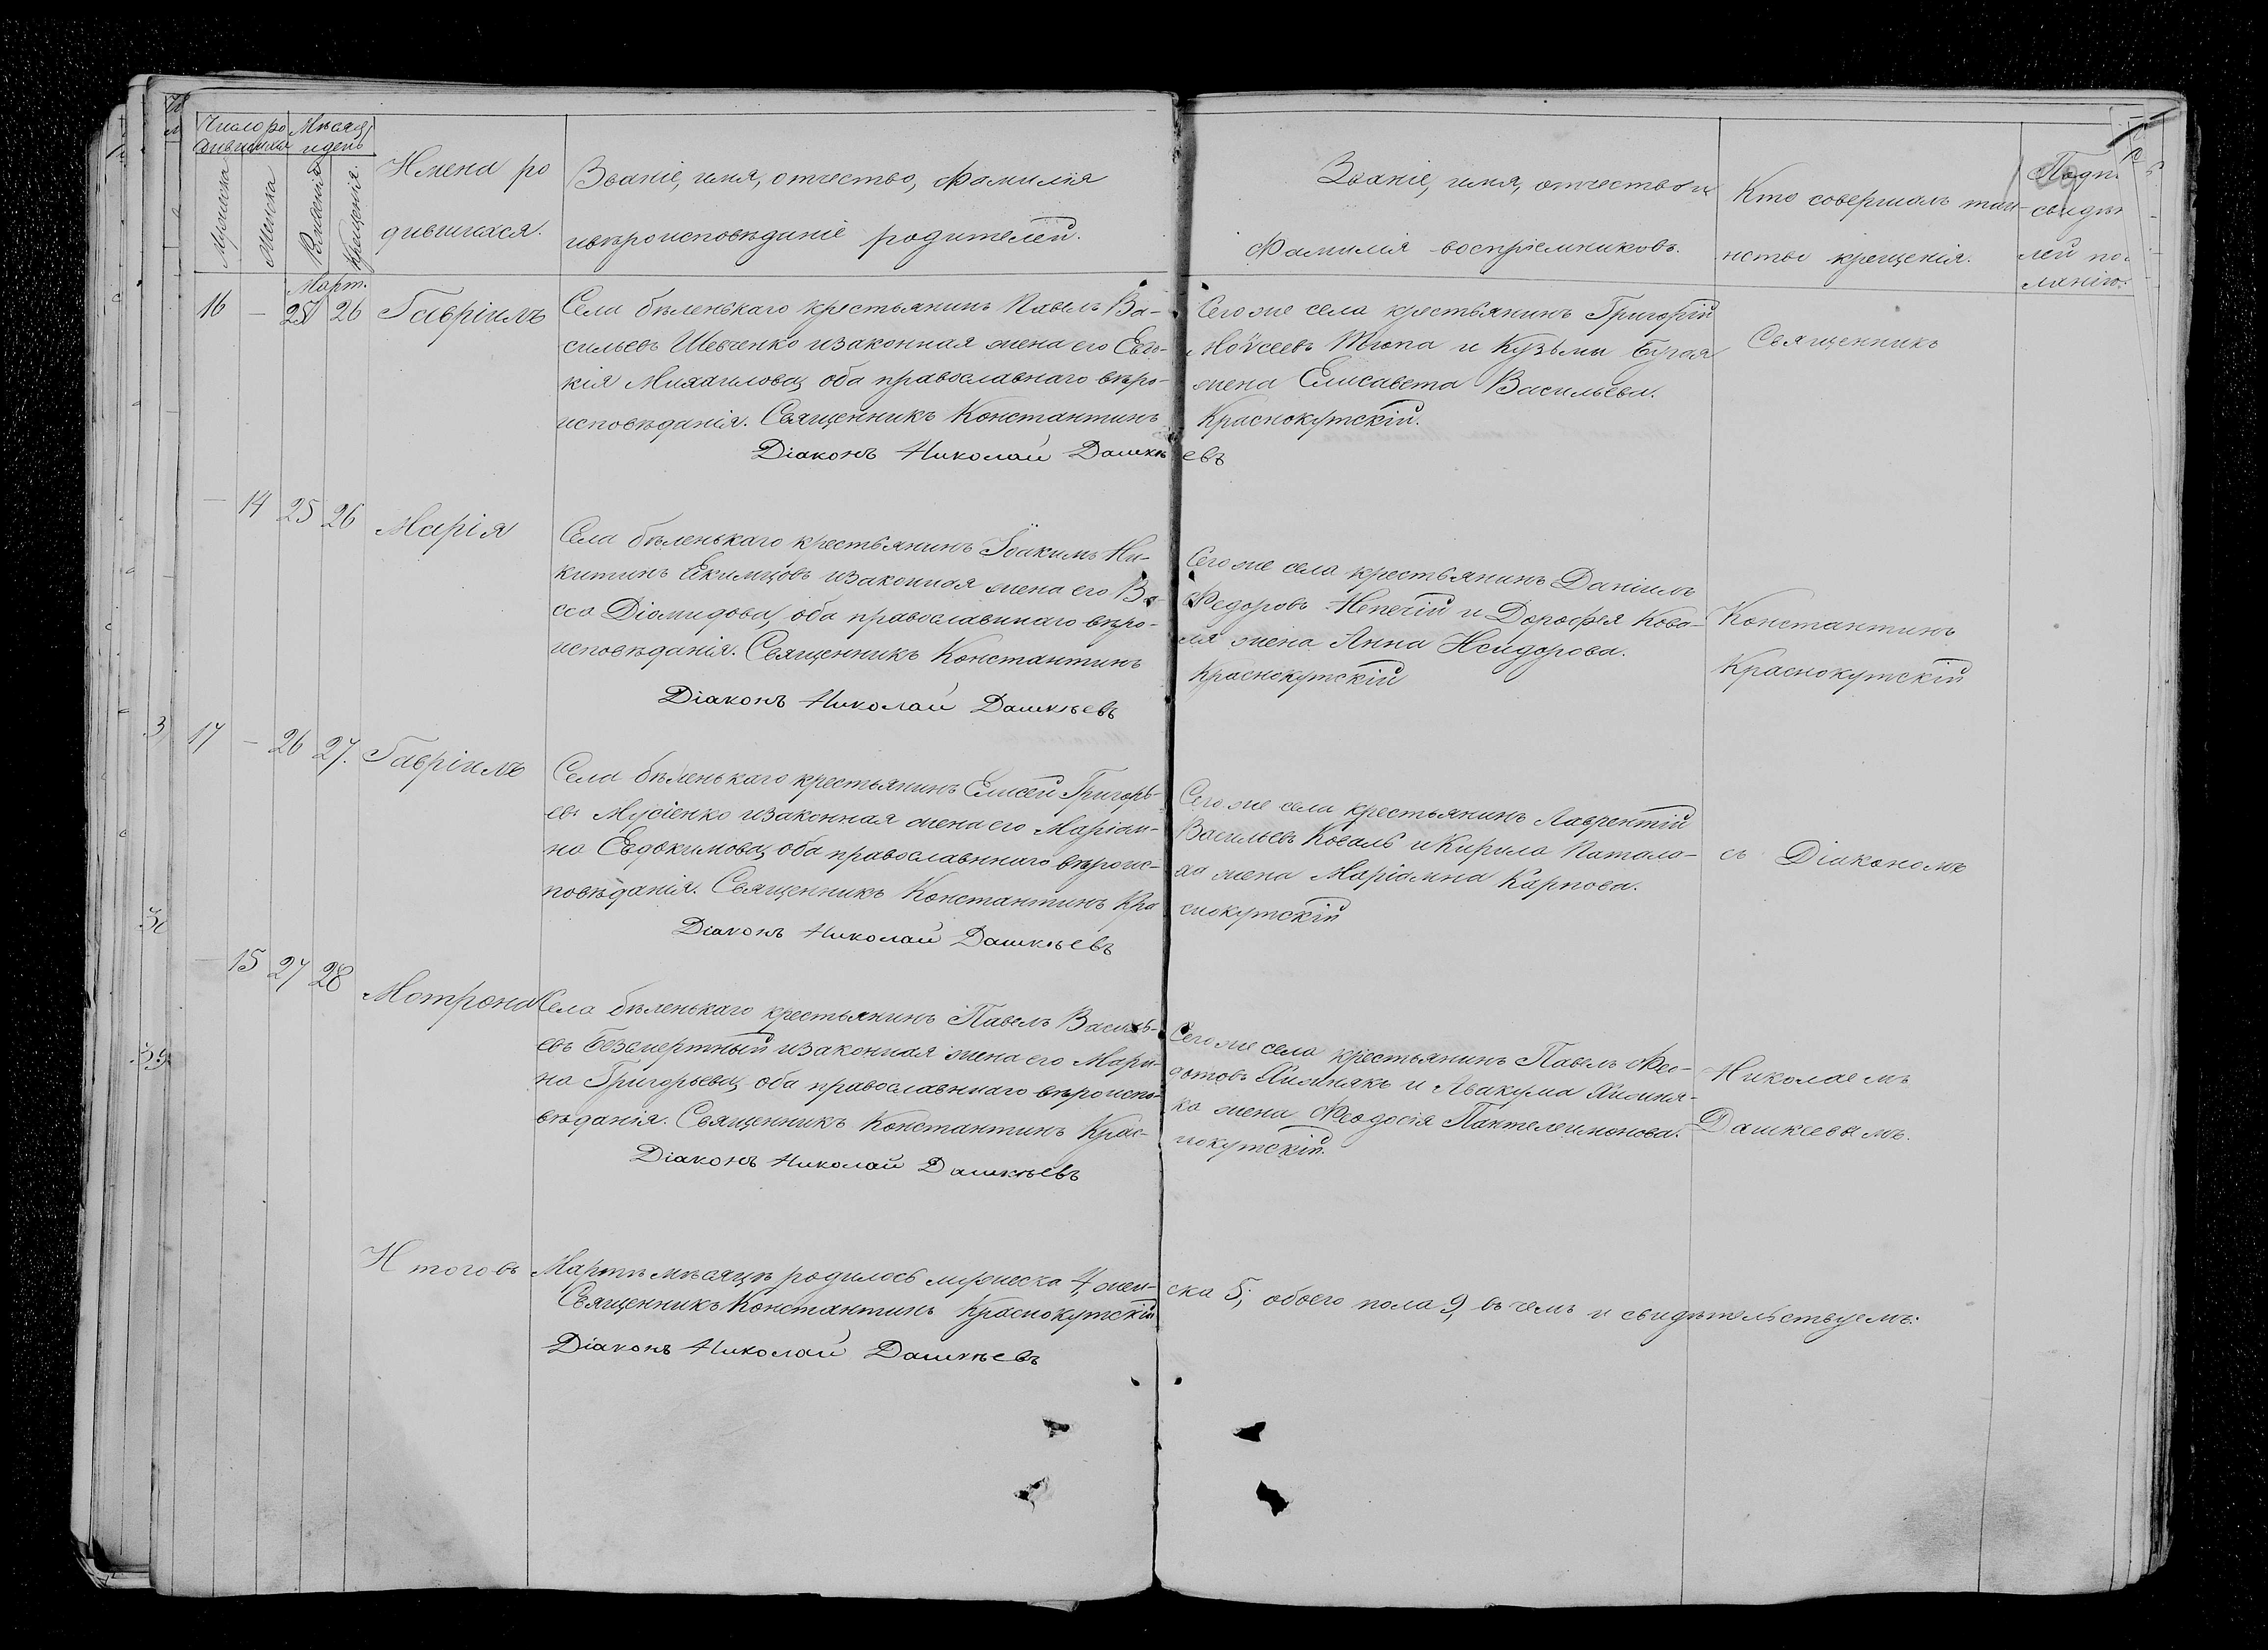 Число ро Мѣсяцъ
дившихся и день
Мужеска
Женска
Рожденія
Крещенія
Имена ро
дившихся.
Званіе, имя, отчество, фамилія
ивѣроисповѣданіе родителей.
Званіе, имя, отчество и
Фамилія воспріемниковъ.
Кто совершалъ таи-
нство крещенія.
Подп.
свидѣт
лей по
ланію.
Март.
16 — 25 26 Гавріилъ
Села бѣленькаго крестьянинъ Павелъ Ва-
сильевъ Шевченко изаконная жена его Евдо-
кія Михаилова, оба православнаго вѣро-
исповѣданія. Священникъ Константинъ
Діаконъ Николай Дашкѣ
Сего же села крестьянинъ Григорій
Моѵсеевъ Тюпа и Кузьмы Бугая
жена Елисавета Васильева.
Краснокутскій.
евъ
Священникъ
— 14 25 26 Марія
Села бѣленькаго крестьянинъ Іоакимъ Ни-
китинъ Екимцовъ изаконная жена его Ва-
сса Діомидова, оба православннаго вѣро-
исповѣданія. Священникъ Константинъ
Діаконъ Николай Дашкѣевъ
Сего же села крестьянинъ Даніилъ
Федоровъ Непечій и Дорофея Кова-
ля жена Анна Исидорова.
Краснокутскій
Константинъ
Краснокутскій
17 — 26 27. Гавріилъ
Села бѣленькаго крестьянинъ Елисей Григорь-
евъ Мусіенко изаконная жена его Маріам-
на Евдокимова, оба православннаго вѣроис-
повѣданія. Священникъ Константинъ Кра
Діаконъ Николай Дашкѣевъ
Сего же села крестьянинъ Лаврентій
Васильевъ Коваль и Кирила Патала-
ха жена Маріамна Карпова.
снокутскій
съ Діакономъ
— 15 27 28 Мотрона
Села бѣленькаго крестьянинъ Павелъ Василь-
евъ Безсмертный изаконная жена его Мари-
на Григорьева, оба православннаго вѣроиспо-
вѣданія. Священникъ Константинъ Крас-
Діаконъ Николай Дашкѣевъ
Сего же села крестьянинъ Павелъ Фео-
дотовъ и Авакума
ка жена Феодосія Пантелеимонова.
нокутскій.
Николаемъ
Дашкеевымъ.
Итого въ Мартѣ мѣсяцѣ родилось мужеска 4, жен-
ска 5; обоего пола 9, въ чемъ и свидѣтельствуемъ:
Священникъ Константинъ Краснокутскій
Діаконъ Николай Дашкѣевъ